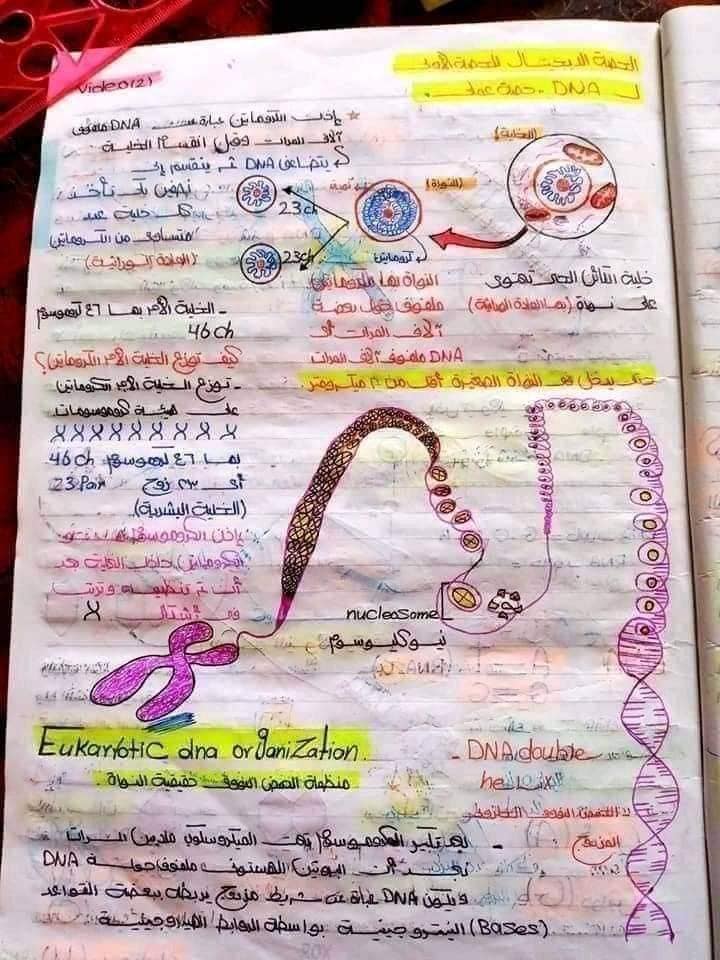 Video(2)
الحصة الابتسال للحصة الأولى
DNA - حصة عملي
إذن الكروماتين عبارة عن DNA ملفوف
آلاف المرات وقبل انقسام الخلية
يتضاعف DNA ثم ينقسم إلى
نصفين بل تأخذ
كل خلية عدد
متساوي من الكروماتين
(المادة الوراثية)
(الخلية)
(النواة)
نوية
كروماتين
23ch
23ch
خلية الكائن الحي تحتوي
على نواة (بها المادة الوراثية)
النواة بها الكروماتين
ملفوف حول بعضه
آلاف المرات أي
DNA ملفوف آلاف المرات
حتى يدخل في النواة الصغيرة أقل من ٢ ميكرومتر
- الخلية الأم بها ٤٦ كروموسوم
46 ch
كيف توزع الخلية الأم الكروماتين؟
- توزع الخلية الأم الكروماتين
على هيئة كروموسومات
X X X X X X X X X X
بها ٤٦ كروموسوم 46 ch
أي ٢٣ زوج 23 Pair
(الخلية البشرية).
إذن الكروموسوم هو
الكروماتين داخل النهاية بعد
أن تم تنظيمه وترتب
في أشكال X
nucleosome
نيوكليوسوم
Eukaryotic dna organization.
منظمة الحمض النووي حقيقية النواة.
- DNA double
helix
الحمض النووي الحلزوني
المزدوج :
- بعد تكبير الكروموسوم تحت الميكروسكوب ملايين المرات
نجد أن البروتين الهستوني ملفوف حوله DNA
ويكون DNA عبارة عن شريط مزدوج يربطه ببعضه القواعد
(Bases) النيتروجينية بواسطة الروابط الهيدروجينية